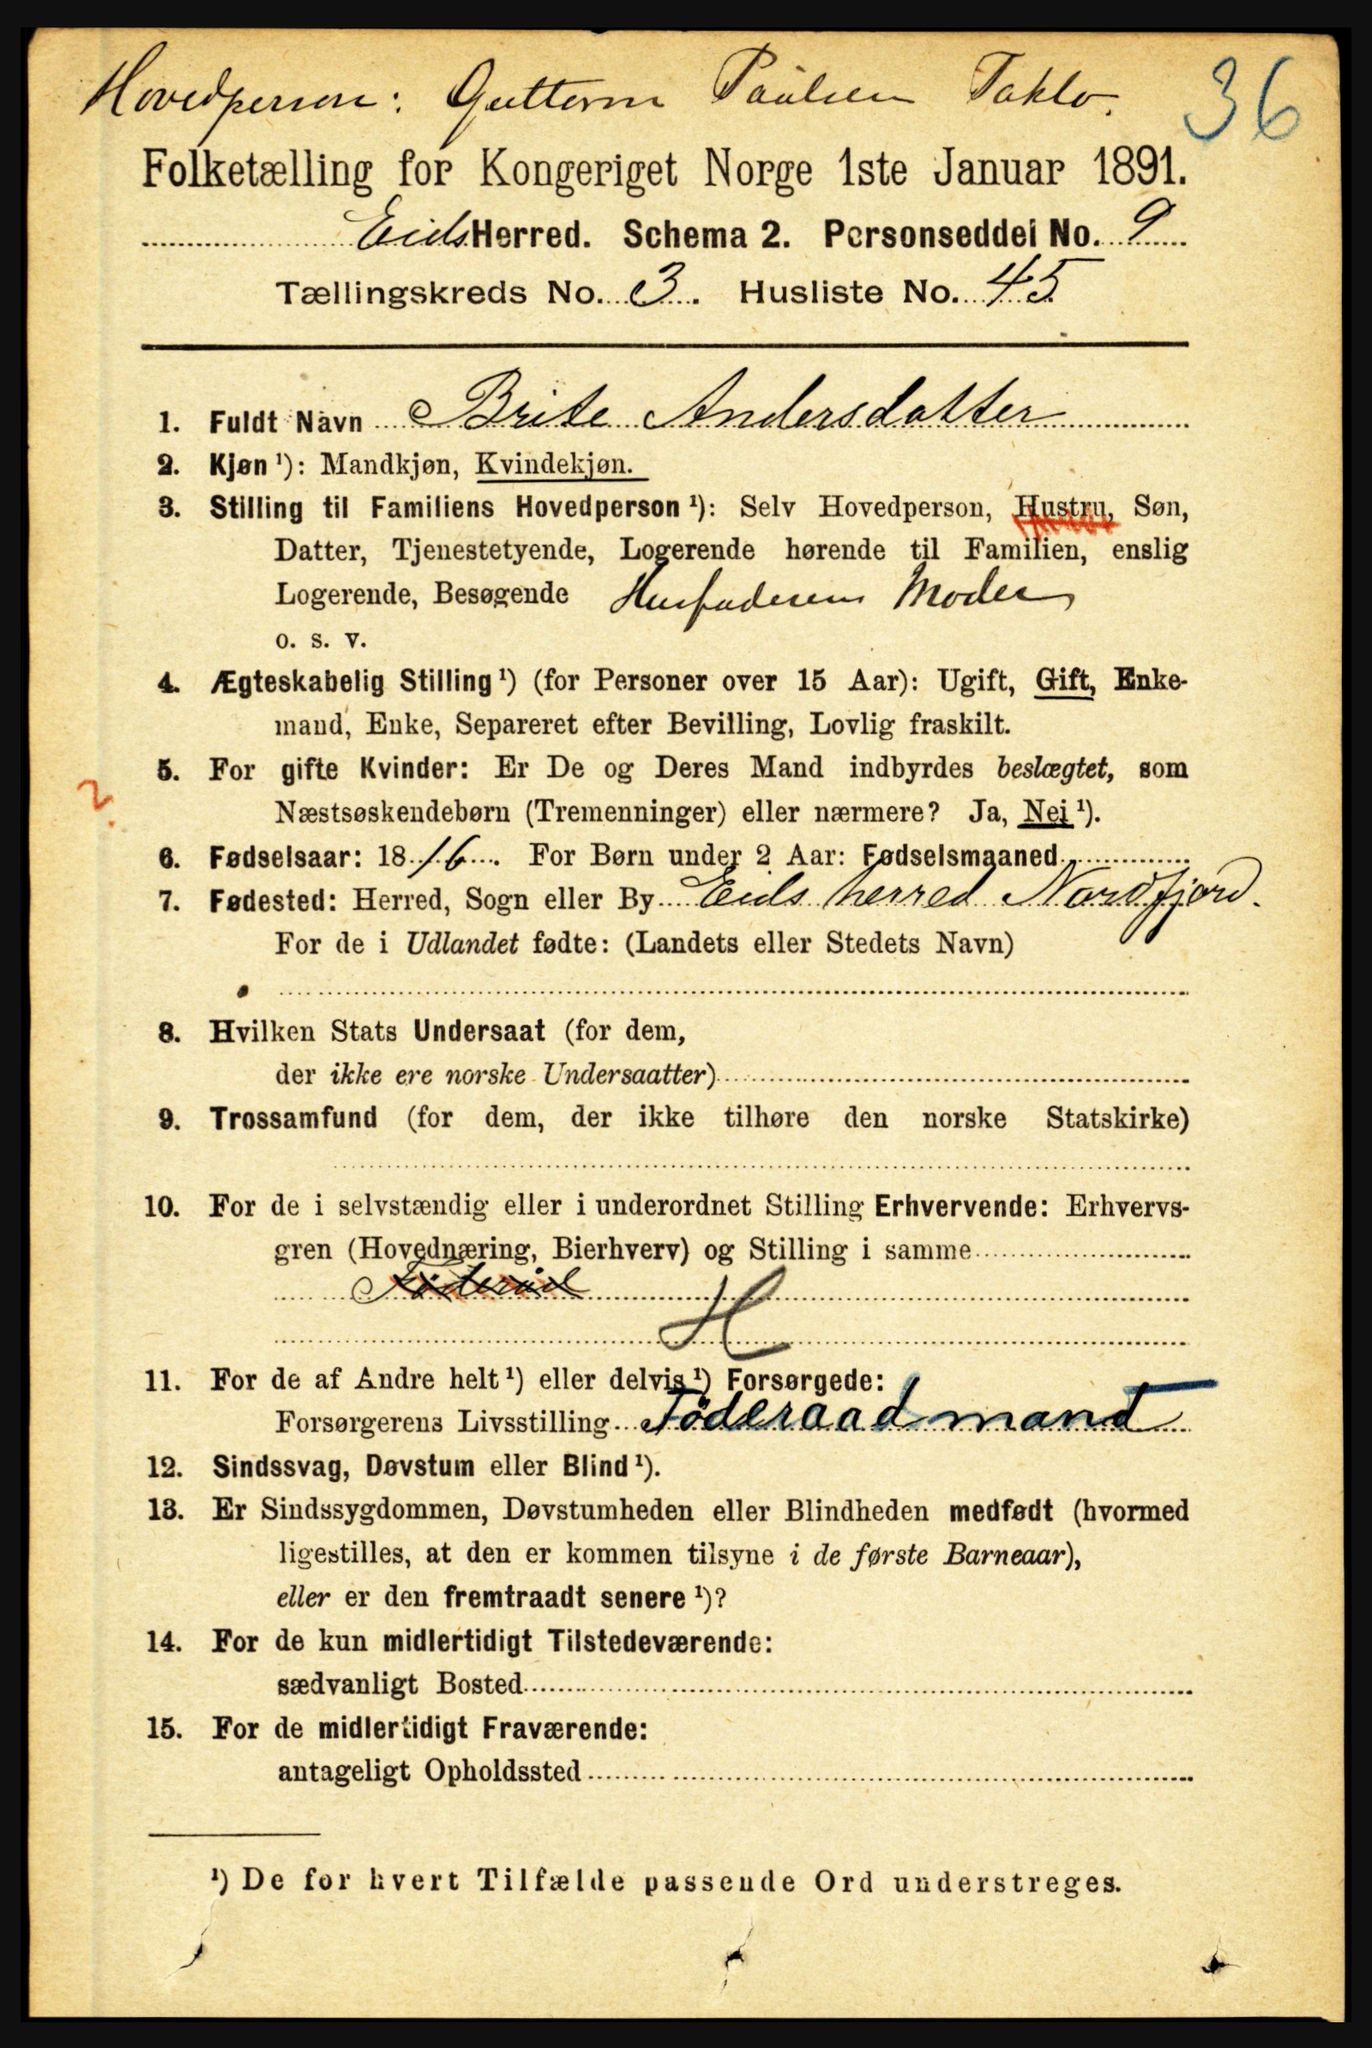 Hovedperson: Guttorm Paulsen Taklo.
36
Folketælling for Kongeriget Norge 1ste Januar 1891.
Eids Herred. Schema 2. Personseddel No. 9
Tællingskreds No. 3. Husliste No. 45
1. Fuldt Navn Brite Andersdatter
2. Kjøn ¹): Mandkjøn, Kvindekjøn.
3. Stilling til Familiens Hovedperson ¹): Selv Hovedperson, Hustru, Søn,
Datter, Tjenestetyende, Logerende hørende til Familien, enslig
Logerende, Besøgende Husfaderens Moder
o. s. v.
4. Ægteskabelig Stilling ¹) (for Personer over 15 Aar): Ugift, Gift, Enke-
mand, Enke, Separeret efter Bevilling, Lovlig fraskilt.
5. For gifte Kvinder: Er De og Deres Mand indbyrdes beslægtet, som
2.
Næstsøskendebørn (Tremenninger) eller nærmere? Ja, Nei ¹).
6. Fødselsaar: 1816. For Børn under 2 Aar: Fødselsmaaned
7. Fødested: Herred, Sogn eller By Eids herred Nordfjord.
For de i Udlandet fødte: (Landets eller Stedets Navn)
8. Hvilken Stats Undersaat (for dem,
der ikke ere norske Undersaatter)
9. Trossamfund (for dem, der ikke tilhøre den norske Statskirke)
10. For de i selvstændig eller i underordnet Stilling Erhvervende: Erhvervs-
gren (Hovednæring, Bierhverv) og Stilling i samme
Föderåd
H
11. For de af Andre helt ¹) eller delvis ¹) Forsørgede:
Forsørgerens Livsstilling Föderaadmand
12. Sindssvag, Døvstum eller Blind ¹).
13. Er Sindssygdommen, Døvstumheden eller Blindheden medfødt (hvormed
ligestilles, at den er kommen tilsyne i de første Barneaar),
eller er den fremtraadt senere ¹)?
14. For de kun midlertidigt Tilstedeværende:
sædvanligt Bosted
15. For de midlertidigt Fraværende:
antageligt Opholdssted
¹) De for hvert Tilfælde passende Ord understreges.